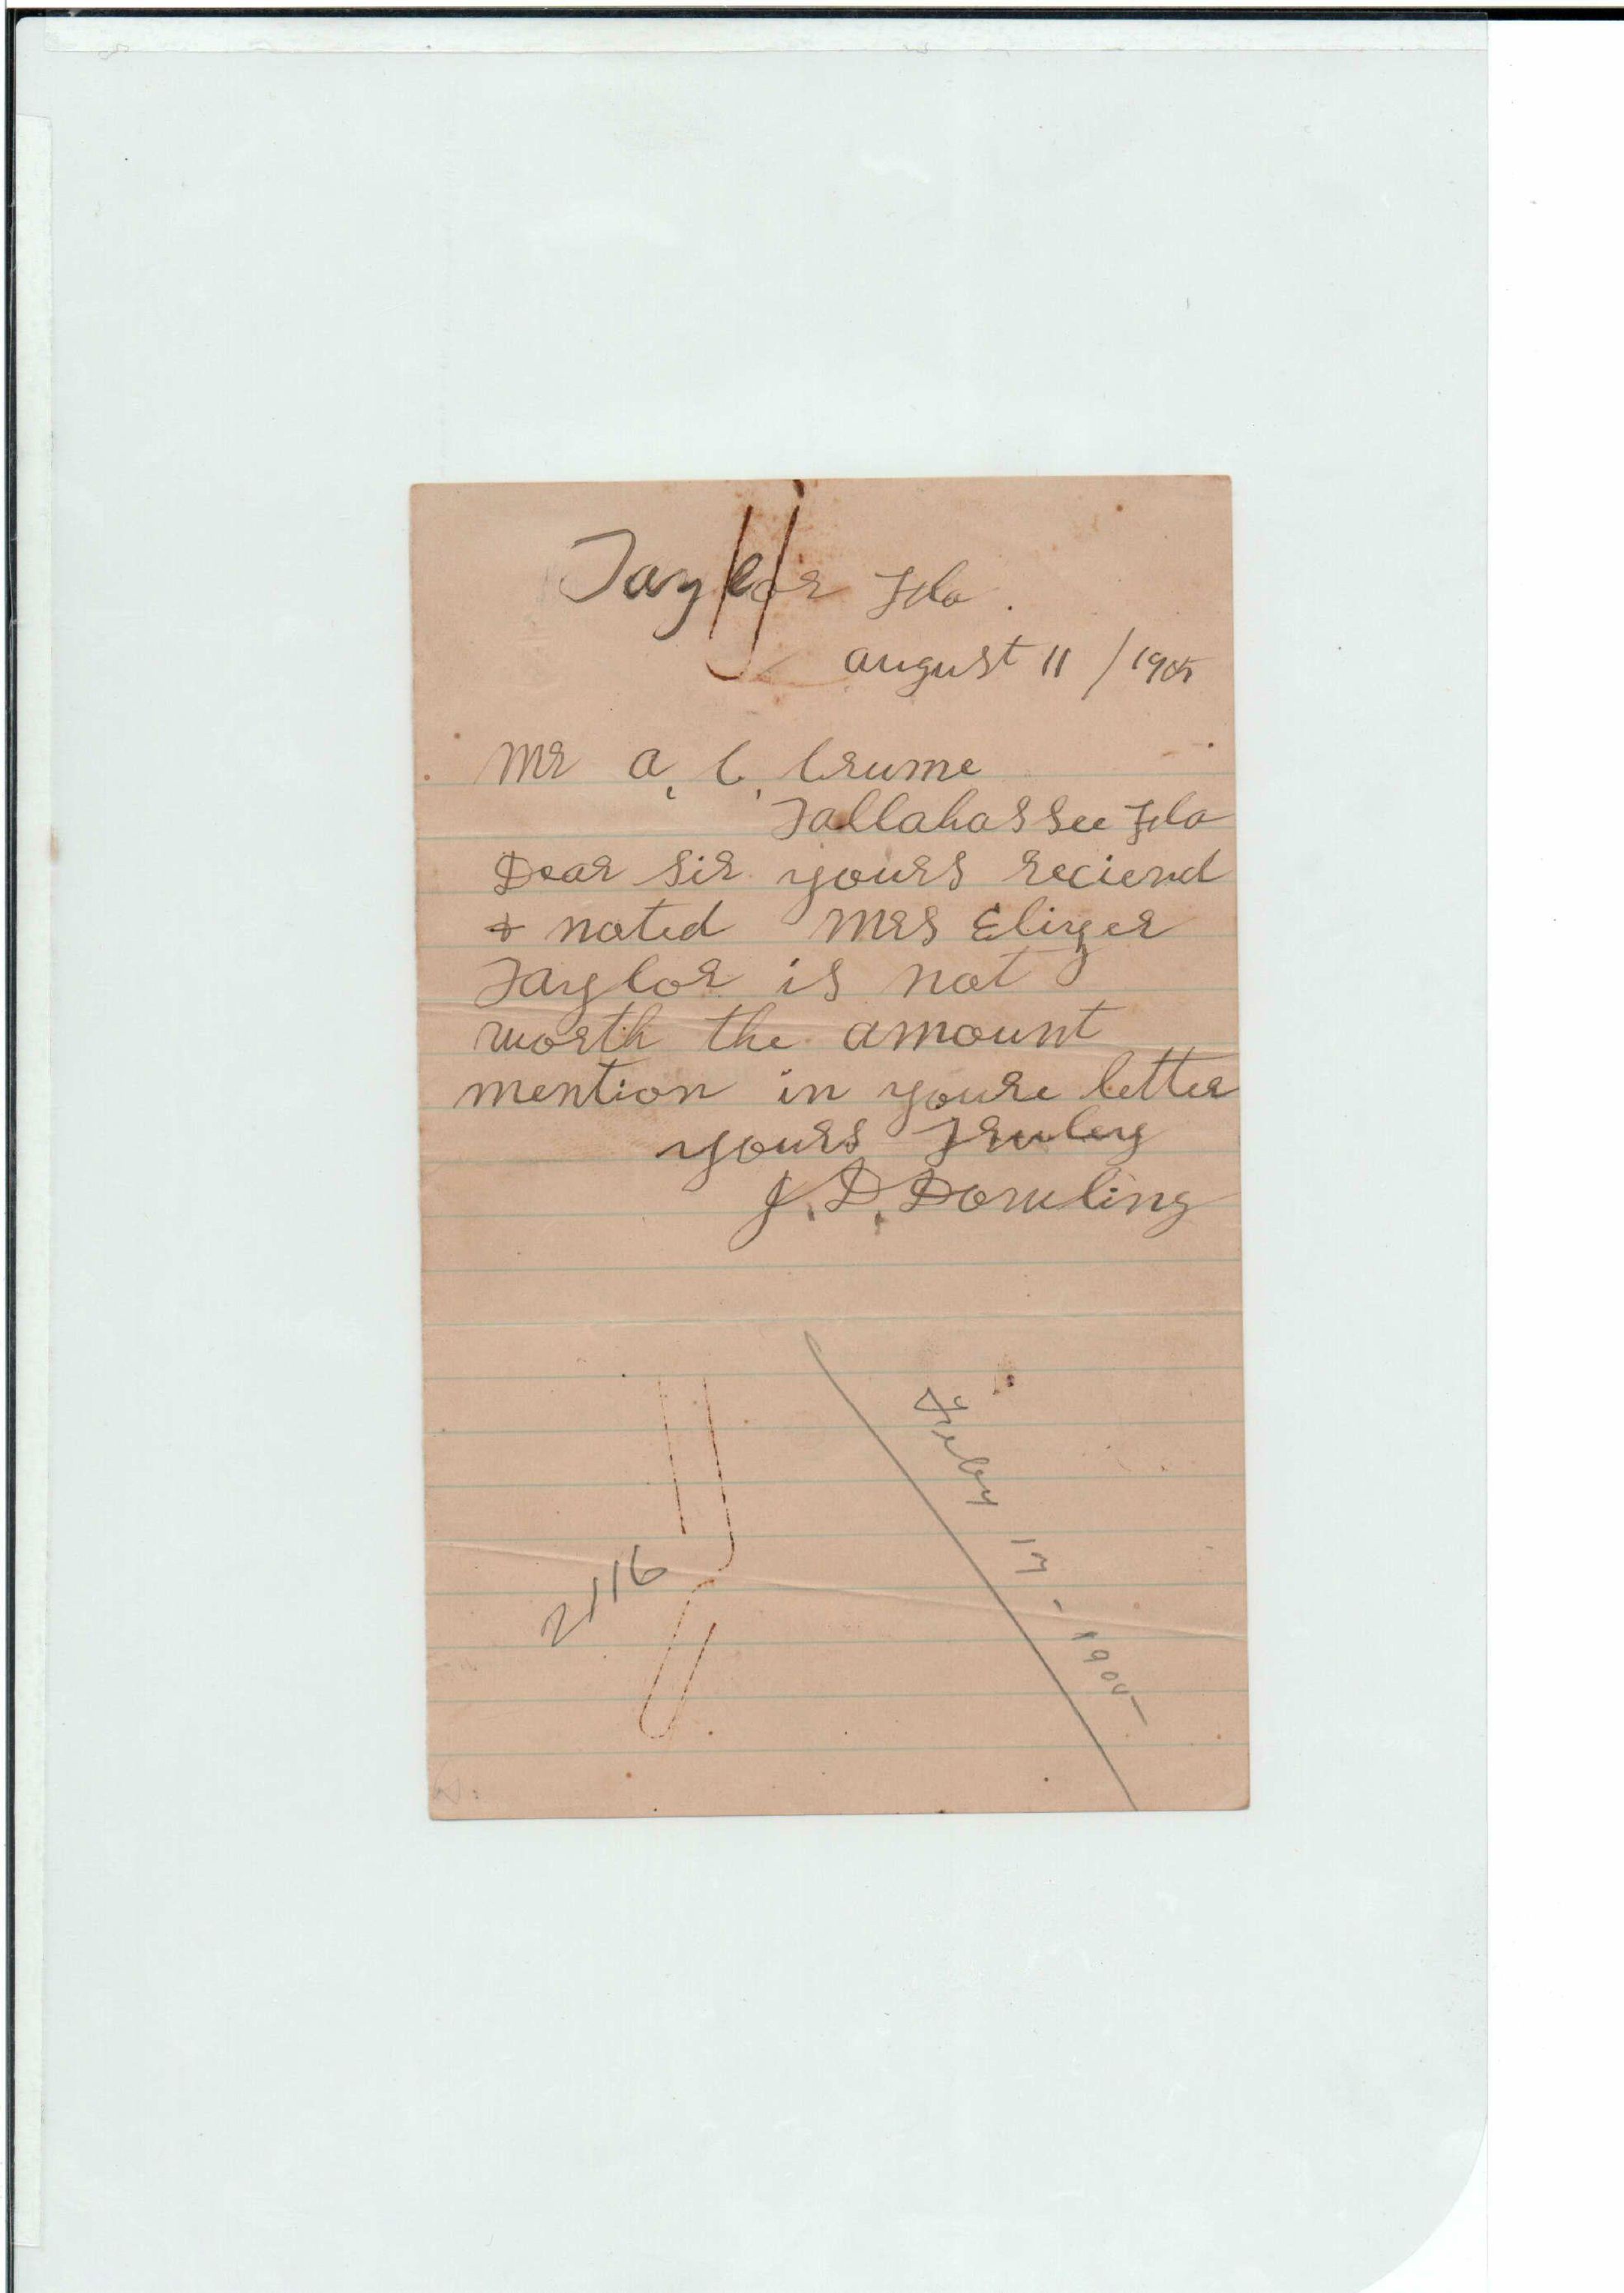 Taylor Fla.
august 11 / 1905
Mr a. C. Crume
Tallahassee Fla
Dear Sir yours recievd
& noted Mrs Elizer
Taylor is not
worth the amount
mention in youre letter
yours Truley
J. D. Dowling
Feby 17 - 1905
2116